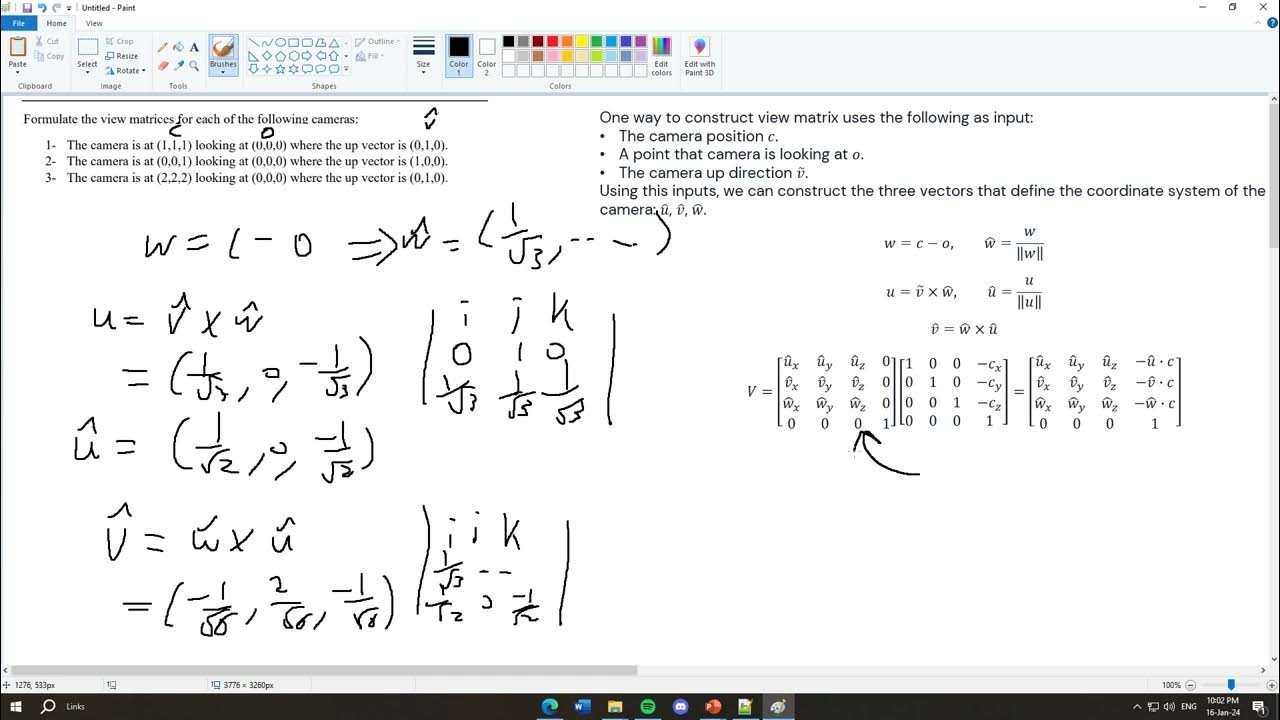 Untitled - Paint
File Home View
Paste Cut Copy Clipboard
Select Crop Resize Rotate Image
Tools
Brushes
Shapes Outline Fill
Size
Color 1 Color 2 Edit colors Colors
Edit with Paint 3D
Formulate the view matrices for each of the following cameras:
c o v̂
1- The camera is at (1,1,1) looking at (0,0,0) where the up vector is (0,1,0).
2- The camera is at (0,0,1) looking at (0,0,0) where the up vector is (1,0,0).
3- The camera is at (2,2,2) looking at (0,0,0) where the up vector is (0,1,0).
w = c - o ⇒ ŵ = (1/√3, -- -)
u = v̂ x ŵ
= (1/√3, 0, -1/√3)
| i j k |
| 0 1 0 |
| 1/√3 1/√3 1/√3 |
û = (1/√2, 0, -1/√2)
v̂ = ŵ x û
= (-1/√6, 2/√6, -1/√6)
| i j k |
| 1/√3 - - |
| 1/√2 0 -1/√2 |
One way to construct view matrix uses the following as input:
• The camera position c.
• A point that camera is looking at o.
• The camera up direction ṽ.
Using this inputs, we can construct the three vectors that define the coordinate system of the
camera: û, v̂, ŵ.
w = c − o, ŵ = w/‖w‖
u = ṽ × ŵ, û = u/‖u‖
v̂ = ŵ × û
V = [ûx ûy ûz 0; v̂x v̂y v̂z 0; ŵx ŵy ŵz 0; 0 0 0 1] [1 0 0 −cx; 0 1 0 −cy; 0 0 1 −cz; 0 0 0 1] = [ûx ûy ûz −û · c; v̂x v̂y v̂z −v̂ · c; ŵx ŵy ŵz −ŵ · c; 0 0 0 1]
1276, 533px
3776 × 3260px
100%
Links
ENG
10:02 PM
16-Jan-24